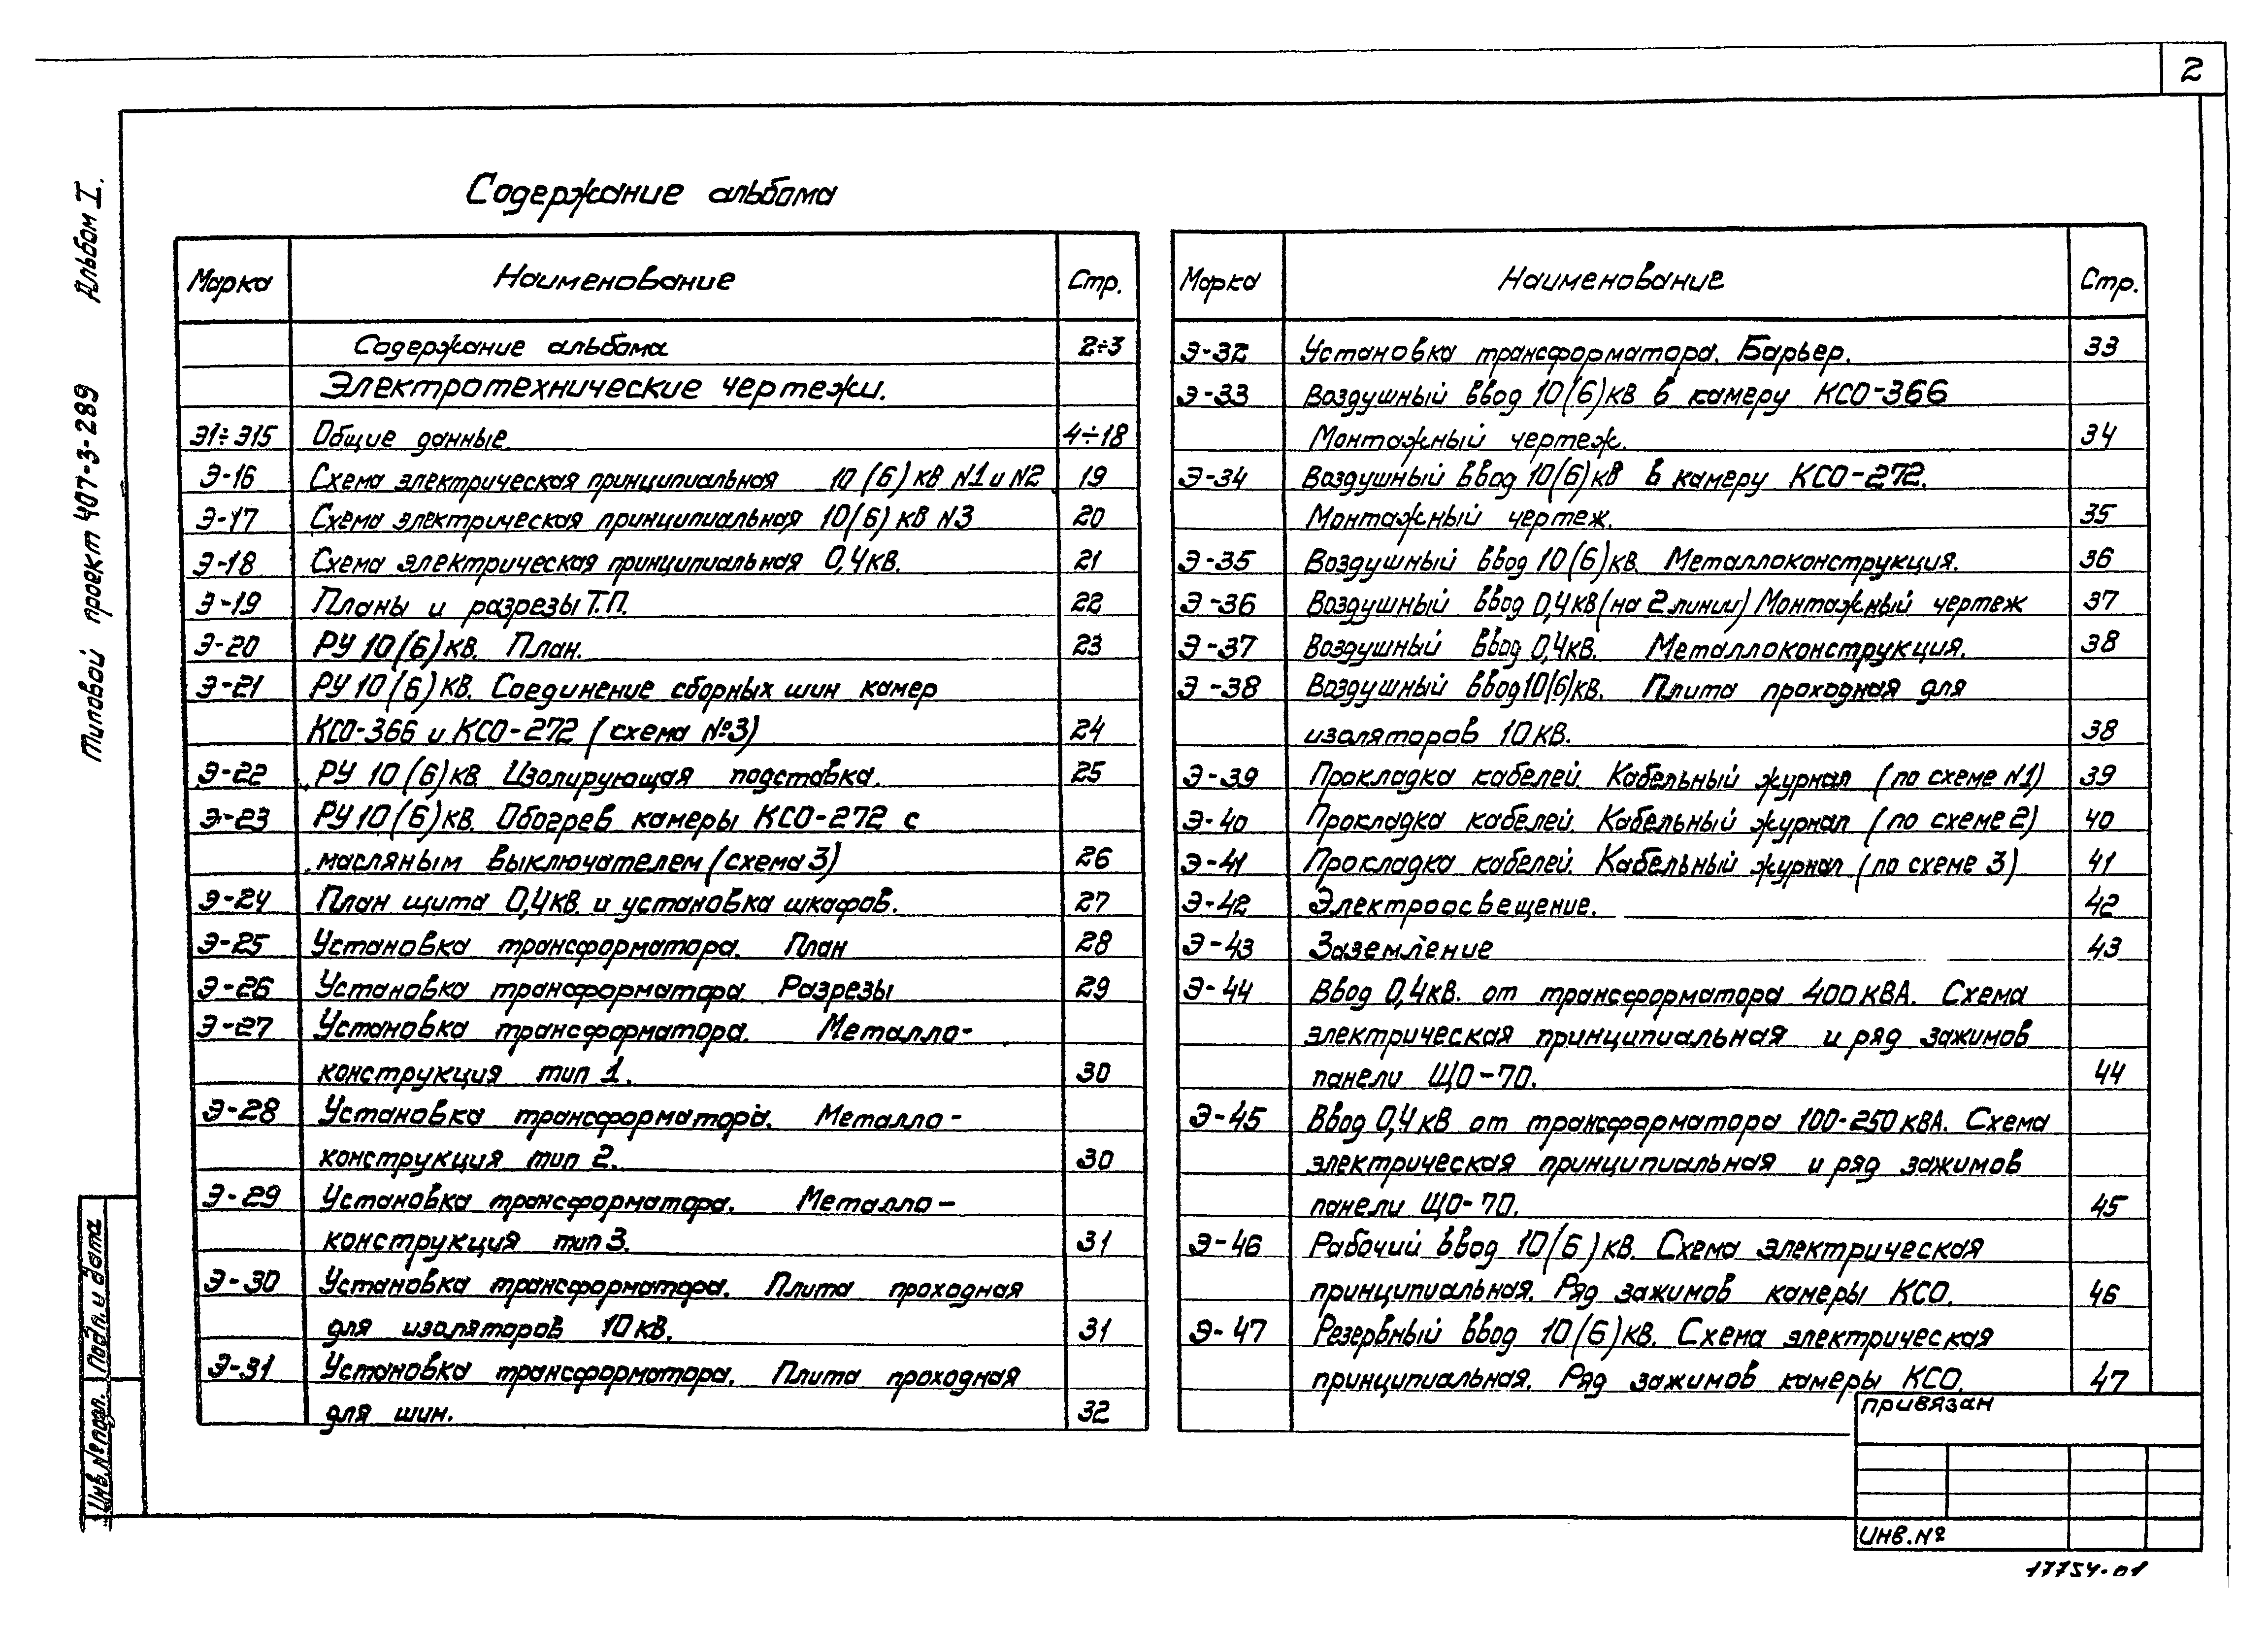 2
Альбом I.
Типовой проект 407-3-289
Содержание альбома
Марка Наименование Стр.
Содержание альбома 2÷3
Электротехнические чертежи.
Э1÷Э15 Общие данные. 4÷18
Э-16 Схема электрическая принципиальная 10(6)кв N1 и N2 19
Э-17 Схема электрическая принципиальная 10(6)кв N3 20
Э-18 Схема электрическая принципиальная 0,4кв. 21
Э-19 Планы и разрезы Т.П. 22
Э-20 РУ 10(6)кв. План. 23
Э-21 РУ 10(6)кв. Соединение сборных шин камер
КСО-366 и КСО-272 (схема №3) 24
Э-22 РУ 10(6)кв Изолирующая подставка. 25
Э-23 РУ 10(6)кв. Обогрев камеры КСО-272 с
масляным выключателем (схема 3) 26
Э-24 План щита 0,4кв. и установка шкафов. 27
Э-25 Установка трансформатора. План 28
Э-26 Установка трансформатора. Разрезы 29
Э-27 Установка трансформатора. Металло-
конструкция тип 1. 30
Э-28 Установка трансформатора. Металло-
конструкция тип 2. 30
Э-29 Установка трансформатора. Металло-
конструкция тип 3. 31
Э-30 Установка трансформатора. Плита проходная
для изоляторов 10кв. 31
Э-31 Установка трансформатора. Плита проходная
для шин. 32
Марка Наименование Стр.
Э-32 Установка трансформатора. Барьер. 33
Э-33 Воздушный ввод 10(6)кв в камеру КСО-366
Монтажный чертеж. 34
Э-34 Воздушный ввод 10(6)кв в камеру КСО-272.
Монтажный чертеж. 35
Э-35 Воздушный ввод 10(6)кв. Металлоконструкция. 36
Э-36 Воздушный ввод 0,4кв (на 2 линии) Монтажный чертеж 37
Э-37 Воздушный ввод 0,4кв. Металлоконструкция. 38
Э-38 Воздушный ввод 10(6)кв. Плита проходная для
изоляторов 10кв. 38
Э-39 Прокладка кабелей. Кабельный журнал (по схеме N1) 39
Э-40 Прокладка кабелей. Кабельный журнал (по схеме 2) 40
Э-41 Прокладка кабелей. Кабельный журнал (по схеме 3) 41
Э-42 Электроосвещение. 42
Э-43 Заземление 43
Э-44 Ввод 0,4кв. от трансформатора 400ква. Схема
электрическая принципиальная и ряд зажимов
панели ЩО-70. 44
Э-45 Ввод 0,4кв от трансформатора 100-250ква. Схема
электрическая принципиальная и ряд зажимов
панели ЩО-70. 45
Э-46 Рабочий ввод 10(6)кв. Схема электрическая
принципиальная. Ряд зажимов камеры КСО. 46
Э-47 Резервный ввод 10(6)кв. Схема электрическая
принципиальная. Ряд зажимов камеры КСО. 47
привязан
Инв.№
17754-01
Подп. и дата
Инв.№ подл.